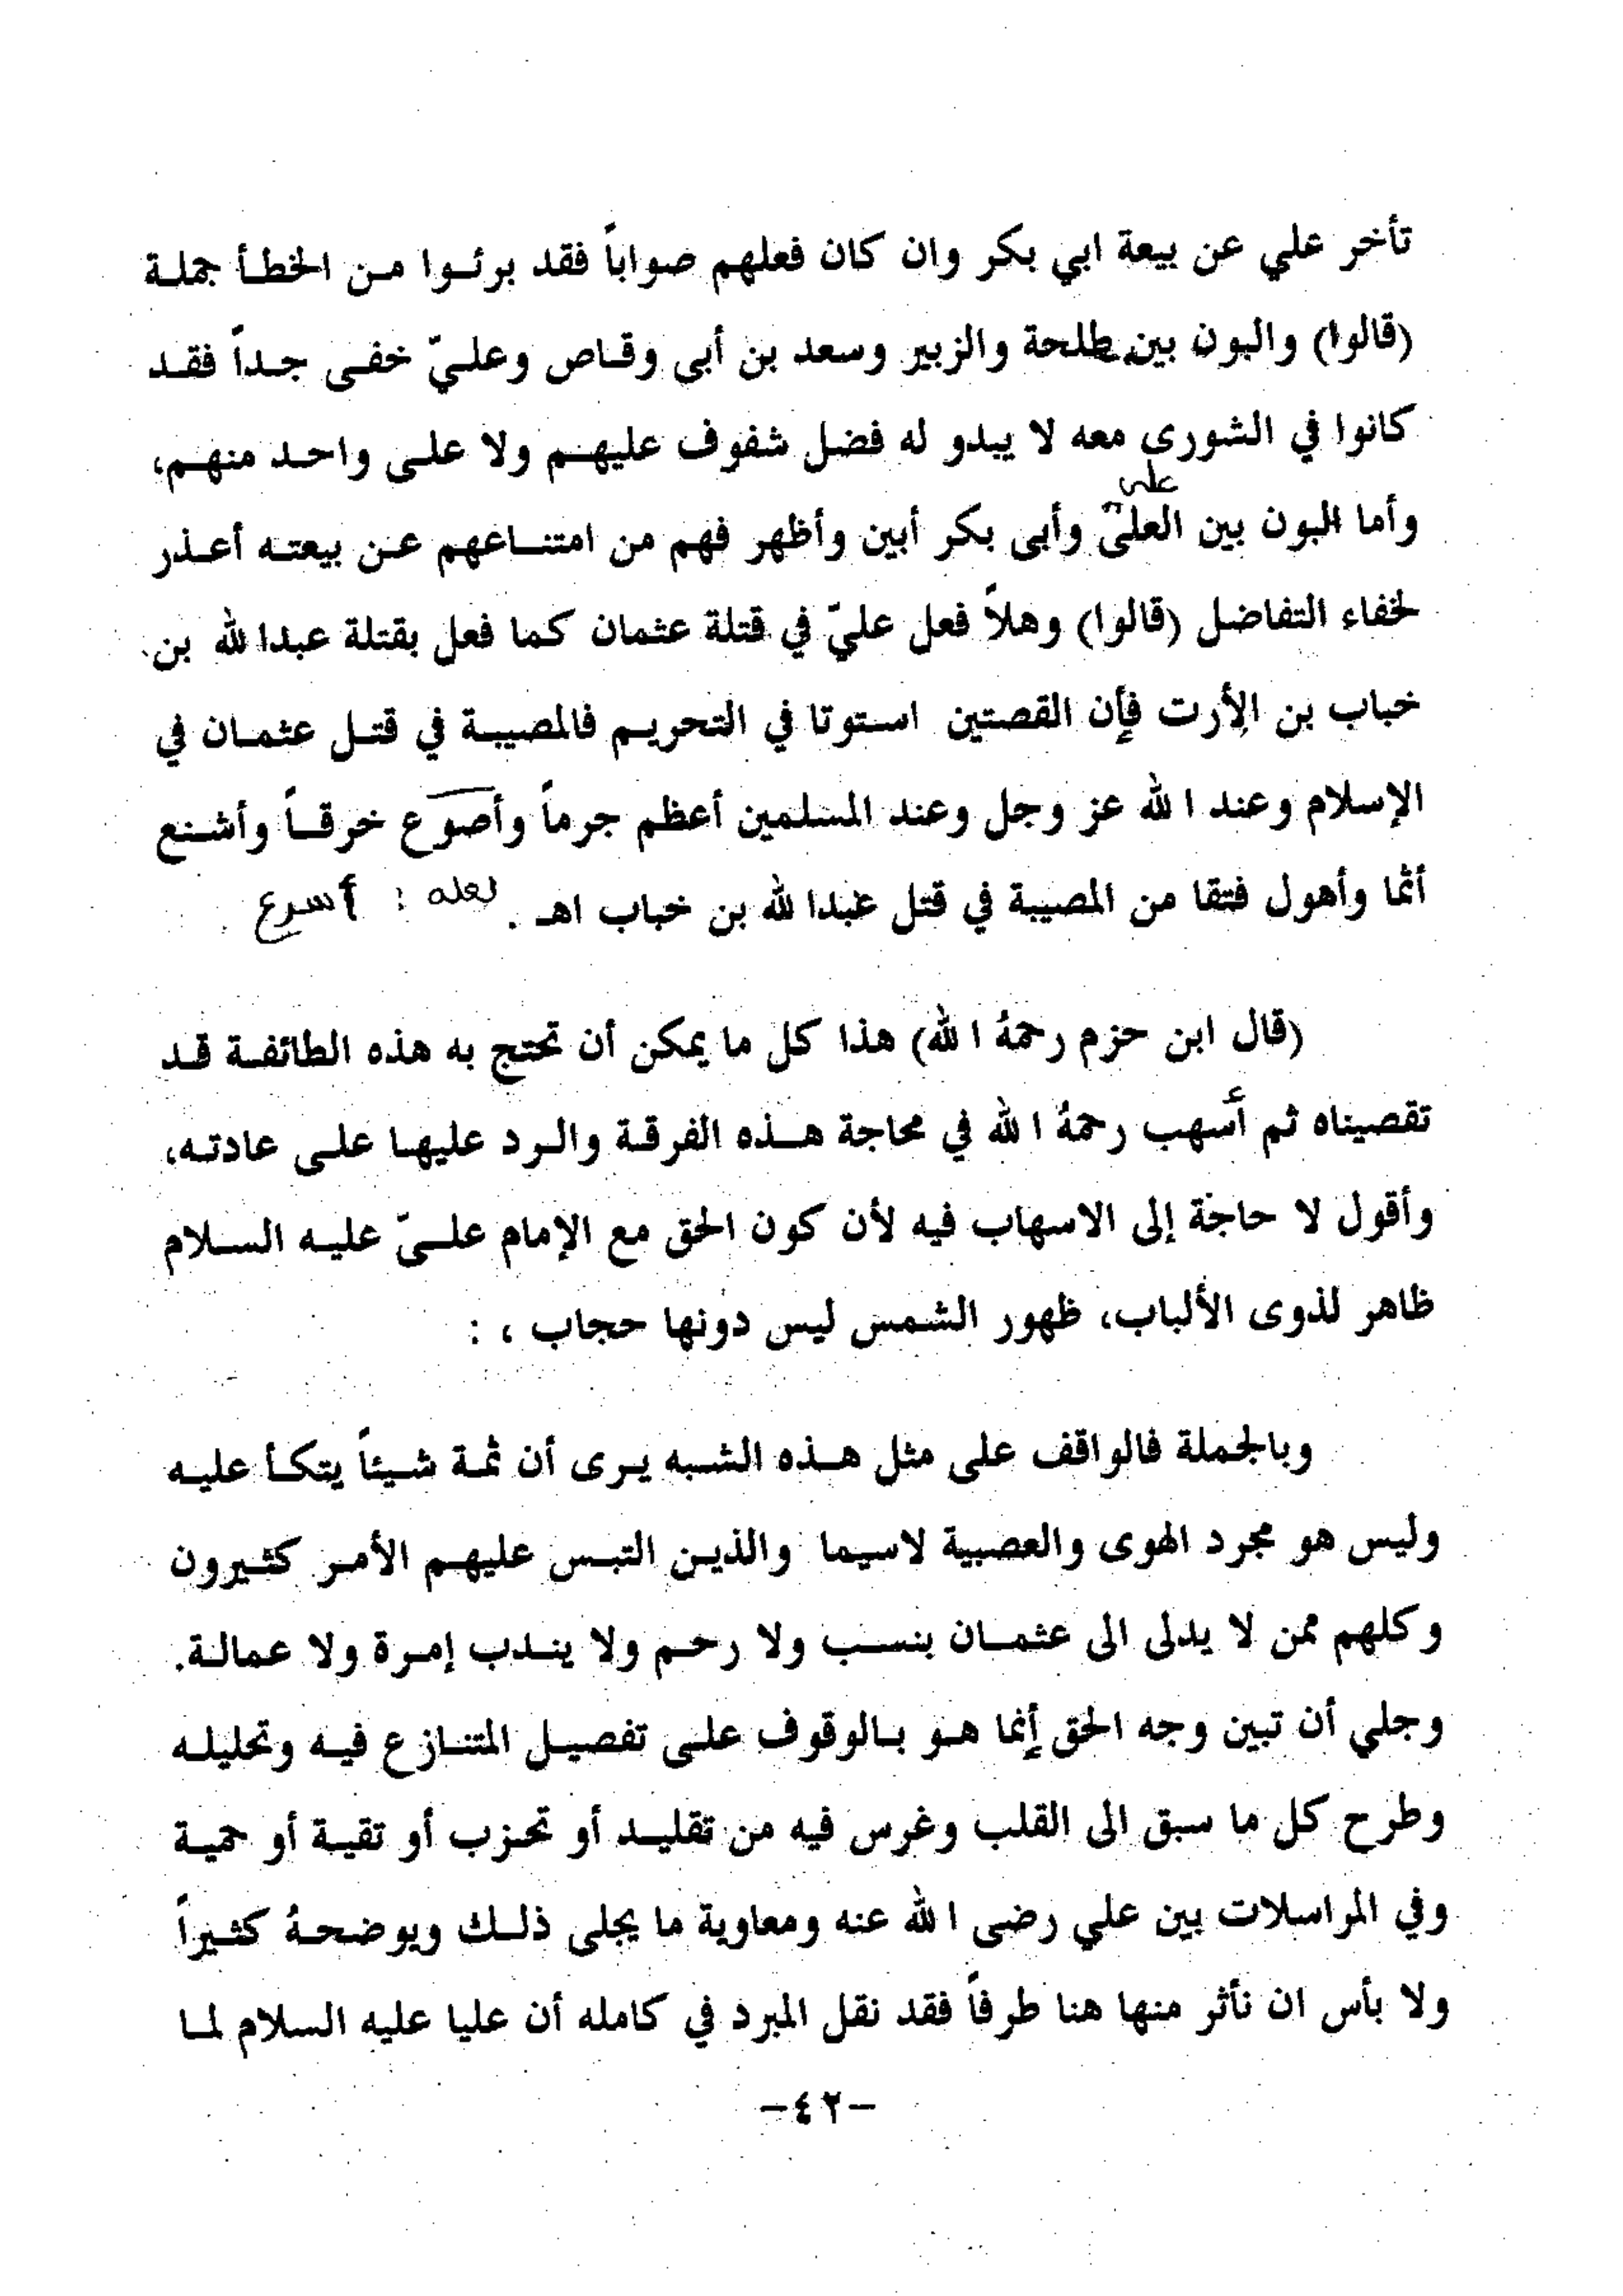 تأخر علي عن بيعة ابي بكر وان كان فعلهم صواباً فقد برئوا من الخطأ جملة
(قالوا) والبون بين طلحة والزبير وسعد بن أبى وقاص وعليّ خفى جداً فقد
كانوا في الشورى معه لا يبدو له فضل شفوف عليهم ولا على واحد منهم،
على
وأما البون بين العلىّ وأبى بكر أبين وأظهر فهم من امتناعهم عن بيعته أعذر
لخفاء التفاضل (قالوا) وهلاً فعل عليّ في قتلة عثمان كما فعل بقتلة عبدا لله بن
خباب بن الأرت فإن القصتين استوتا في التحريم فالمصيبة في قتل عثمان في
الإسلام وعند ا لله عز وجل وعند المسلمين أعظم جرماً وأصوع خرقاً وأشنع
أثما وأهول فتقا من المصيبة في قتل عبدا لله بن خباب اهـ . لعله : أسرع
(قال ابن حزم رحمهُ ا لله) هذا كل ما يمكن أن تحتج به هذه الطائفة قد
تقصيناه ثم أسهب رحمهُ ا لله في محاجة هذه الفرقة والرد عليها على عادته،
وأقول لا حاجة إلى الاسهاب فيه لأن كون الحق مع الإمام علىّ عليه السلام
ظاهر لذوى الألباب، ظهور الشمس ليس دونها حجاب ، :
وبالجملة فالواقف على مثل هذه الشبه يرى أن ثمة شيئاً يتكأ عليه
وليس هو مجرد الهوى والعصبية لاسيما والذين التبس عليهم الأمر كثيرون
وكلهم ممن لا يدلى الى عثمان بنسب ولا رحم ولا يندب إمرة ولا عمالة.
وجلي أن تبين وجه الحق إنما هو بالوقوف على تفصيل المتنازع فيه وتحليله
وطرح كل ما سبق الى القلب وغرس فيه من تقليد أو تحزب أو تقية أو حمية
وفي المراسلات بين علي رضى ا لله عنه ومعاوية ما يجلى ذلك ويوضحهُ كثيراً
ولا بأس ان نأثر منها هنا طرفاً فقد نقل المبرد في كامله أن عليا عليه السلام لما
-٤٢-